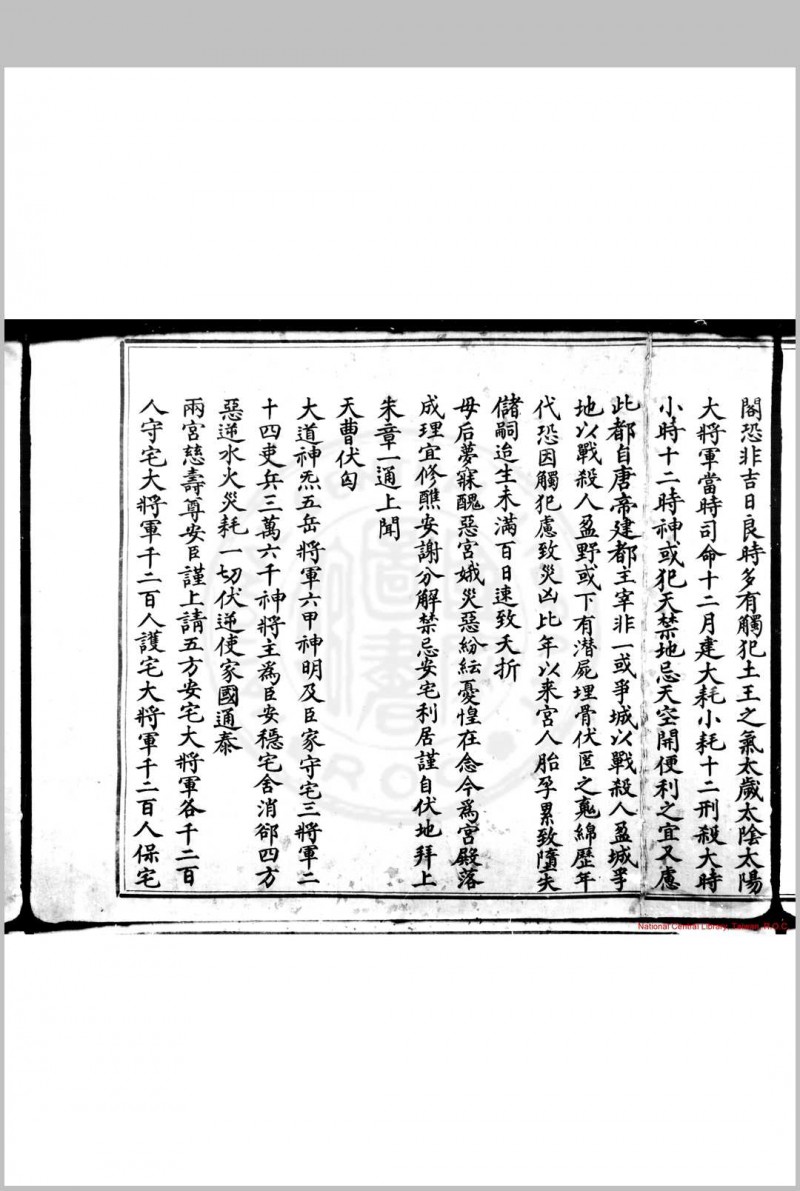 閣恐非吉日良時多有觸犯土王之氣太歲太陰太陽
大將軍當時司命十二月建大耗小耗十二刑殺大時
小時十二時神或犯天禁地忌天空開便利之宜又慮
此都自唐帝建都主宰非一或爭城以戰殺人盈城爭
地以戰殺人盈野或下有潛屍埋骨伏匿之䰟綿歷年
代恐因觸犯處致災凶比年以來宮人胎孕累致墮失
儲嗣迨生未滿百日速致夭折
母后夢寐醜惡宮娥災惡紛紜憂惶在念今為宮殿落
成理宜修醮安謝分解禁忌安宅利居謹自伏地拜上
朱章一通上聞
天曹伏匄
大道神炁五岳將軍六甲神明及臣家守宅三將軍二
十四吏兵三萬六千神將主為臣安穩宅舍消郤四方
惡逆水火災耗一切伏遞使家國通泰
兩宮慈壽尊安臣謹上請五方安宅大將軍各千二百
人守宅大將軍千二百人護宅大將軍千二百人保宅
National Central Library, Taiwan, R.O.C